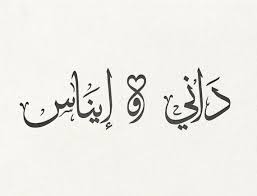 دَاني و إينَاس